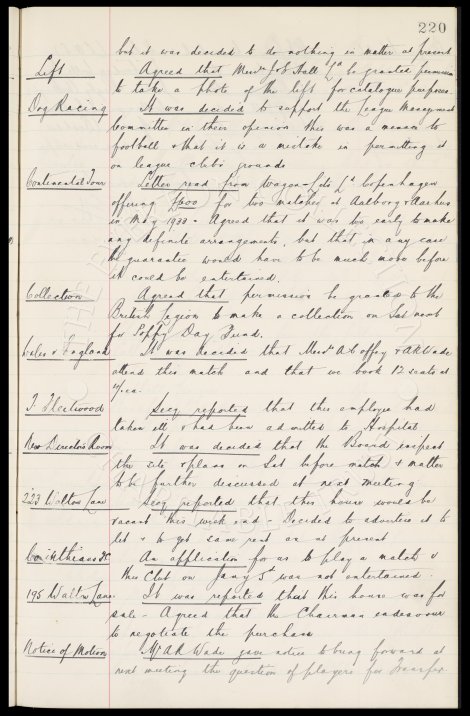 220
but it was decided to do nothing in matter at present
Lift Agreed that Messrs J & E Hall Ld be granted permission
to take a photo of the lift for catalogue purposes.
Dog Racing It was decided to support the League Management
Committee in their opinion this was a menace to
football & that it is a mistake in permitting it
on league clubs grounds
Continental Tour Letter read from Wagon-Lits Ld Copenhagen
offering £400 for two matches at Aalborg & Aarhus
in May 1933 - Agreed that it was too early to make
any definite arrangements, but that in any case
the guarantee would have to be much more before
it could be entertained.
Collection Agreed that permission be granted to the
British Legion to make a collection on Sat next
for Poppy Day Fund.
Wales v England It was decided that Messrs A Coffey & AR Wade
attend this match and that we book 12 seats at
T. Fleetwood Secy reported that this employee had
taken ill & had been admitted to Hospital
New Directors Room It was decided that the Board inspect
the site & plans on Sat before match & matter
to be further discussed at next meeting
223 Walton Lane Secy reported that this house would be
vacant this week end - Decided to advertise it to
let & to get same rent as at present
Corinthians FC An application for us to play a match v
this Club on Jany 5th was not entertained.
195 Walton Lane It was reported that this house was for
sale - Agreed that the Chairman endeavour
to negotiate the purchase
Notice of Motion Mr AR Wade gave notice to bring forward at
next meeting the question of players for Transfer